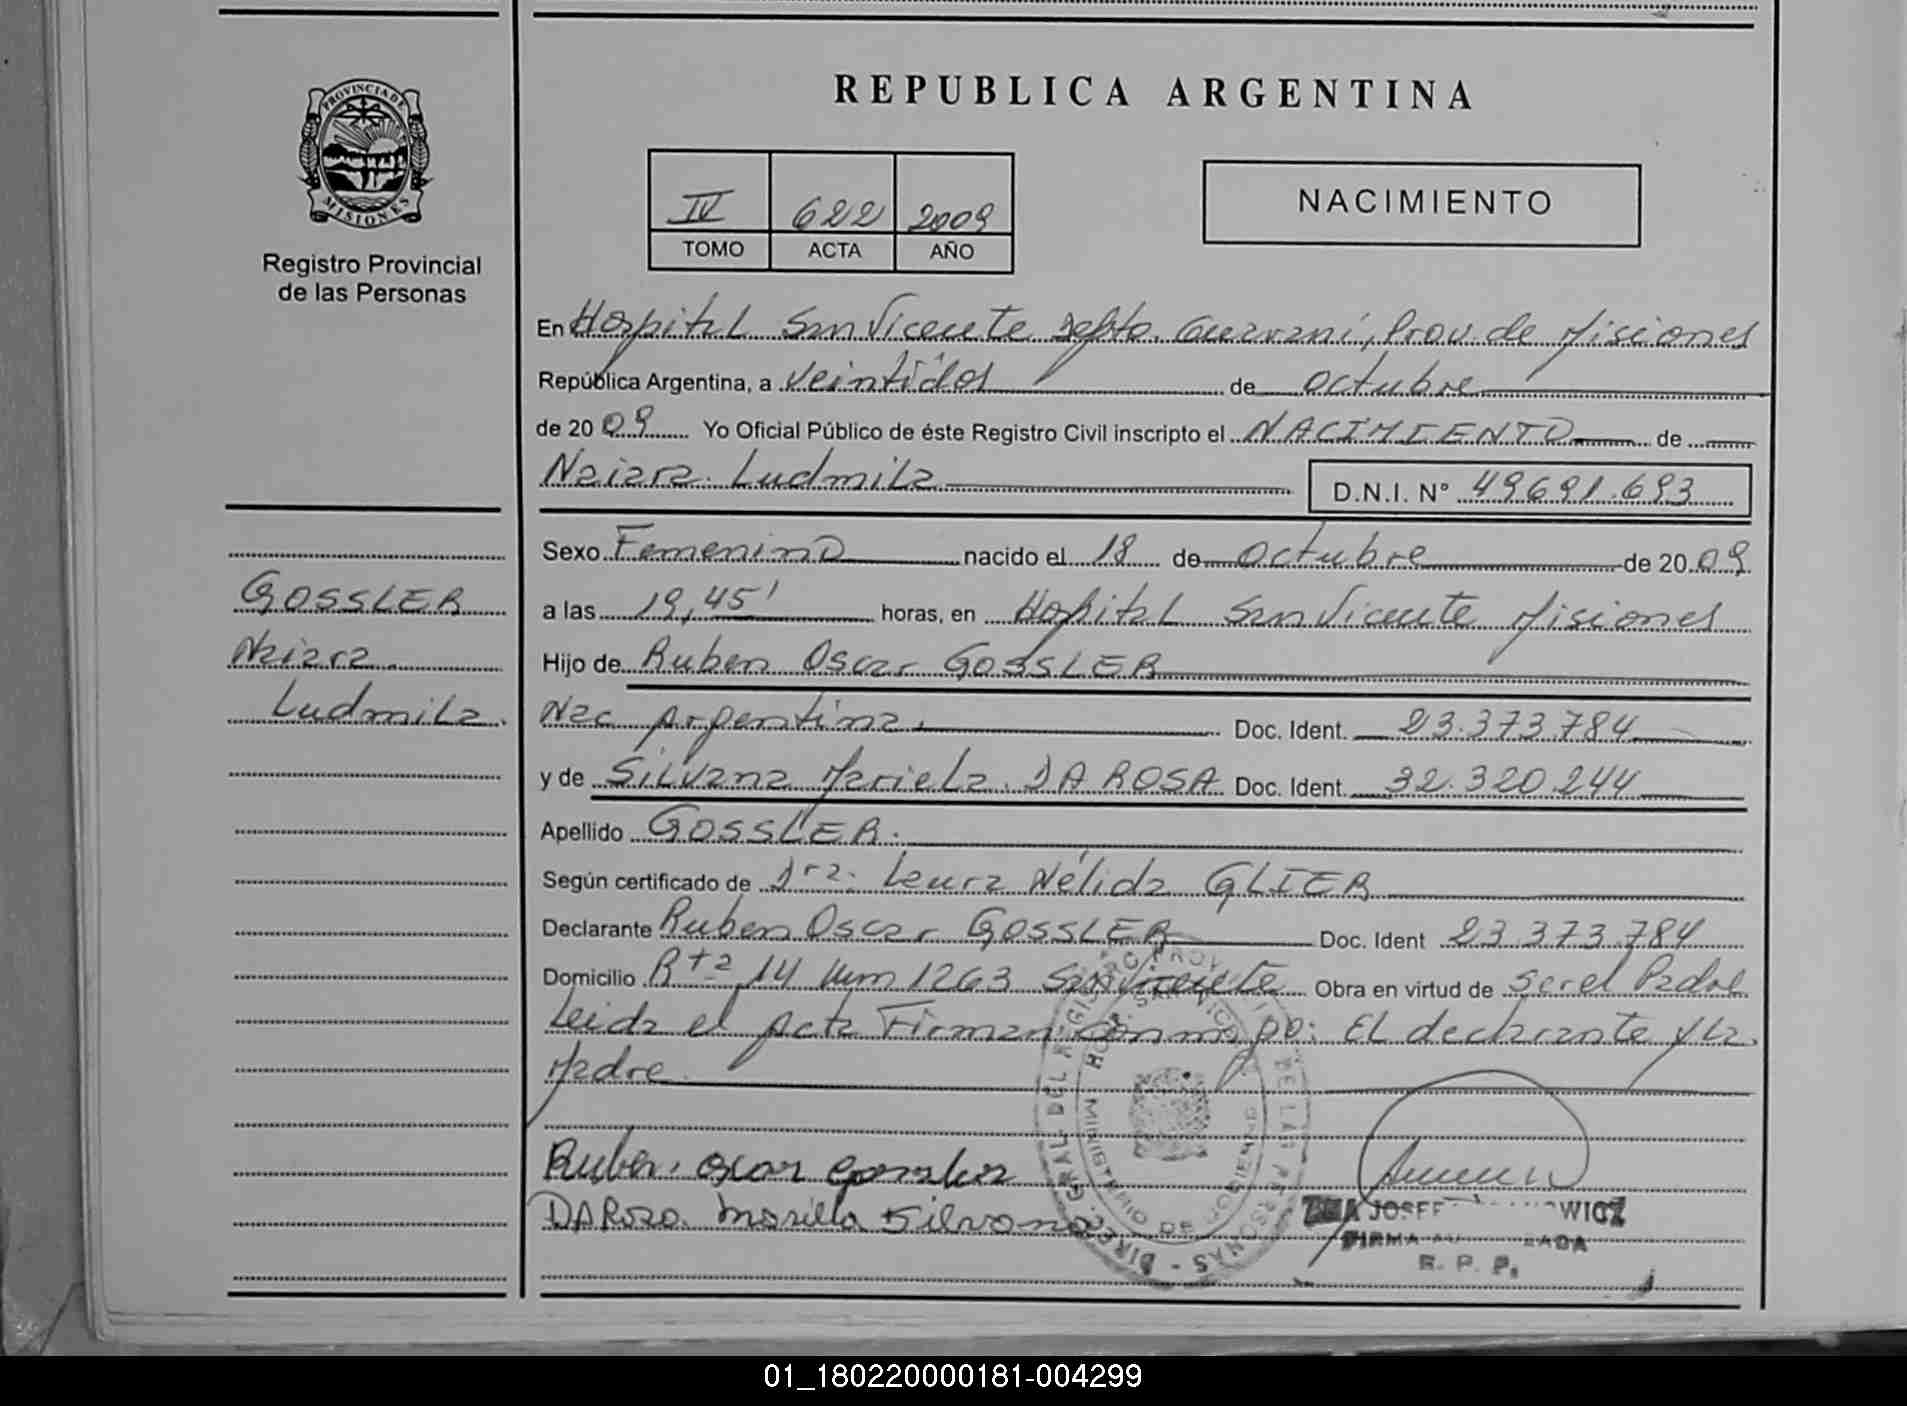 PROVINCIA DE
MISIONES
Registro Provincial
de las Personas
GOSSLER
Naiara
Ludmila.
REPUBLICA ARGENTINA
IV 622 2009
TOMO ACTA AÑO
NACIMIENTO
En Hospital San Vicente Depto. Guarani, Prov. de Misiones
República Argentina, a veintidos de octubre
de 2009 Yo Oficial Público de éste Registro Civil inscripto el NACIMIENTO de
Naiara Ludmila D.N.I. N° 49.691.693
Sexo Femenino nacido el 18 de octubre de 2009
a las 19,45' horas, en Hospital San Vicente Misiones
Hijo de Ruben Oscar GOSSLER
Nac Argentina. Doc. Ident. 23.373.784
y de Silvana Mariela DA ROSA Doc. Ident. 32.320.244
Apellido GOSSLER.
Según certificado de Dra. Laura Nélida GLIER
Declarante Ruben Oscar GOSSLER Doc. Ident 23.373.784
Domicilio Rta 14 km 1263 San Vicente Obra en virtud de ser el Padre
Leida el Acta Firman conmigo: El declarante y la
Madre
Ruben Oscar
DA Roso Mariella Silvana
DIREC. GRAL. DEL REGISTRO PROV. DE LAS PERSONAS
MINISTERIO DE GOBIERNO
JOSEF WICZ
FIRMA
R. P. P.
01_180220000181-004299